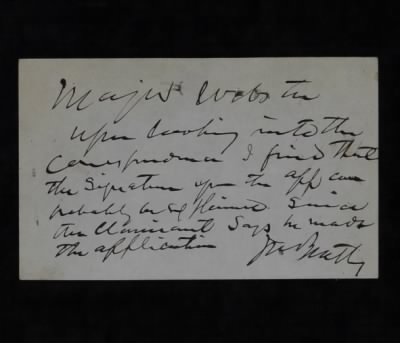 Major Webster
upon looking into the
Correspondence I find that
the signature upon the app can
probably be explained since
the Claimant says he made
the application
Jno Beatty